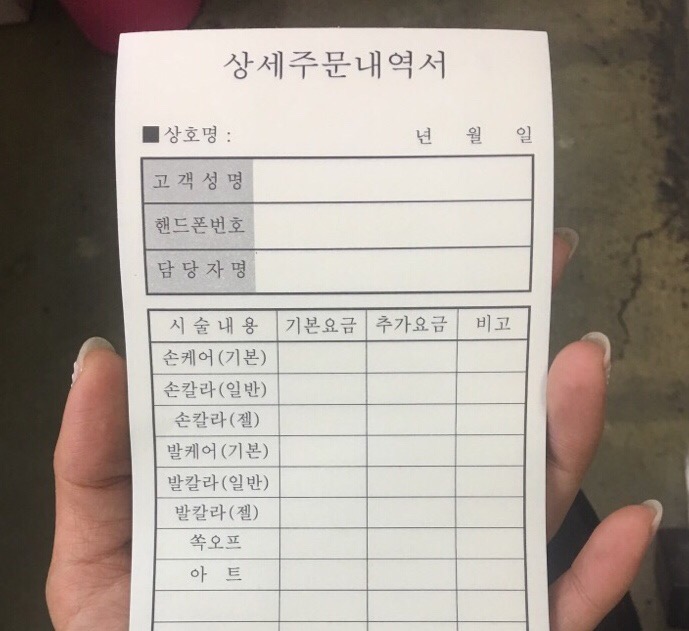 상세주문내역서
■상호명 : 년 월 일
고객성명
핸드폰번호
담당자명
시술내용 기본요금 추가요금 비고
손케어(기본)
손칼라(일반)
손칼라(젤)
발케어(기본)
발칼라(일반)
발칼라(젤)
쏙오프
아 트